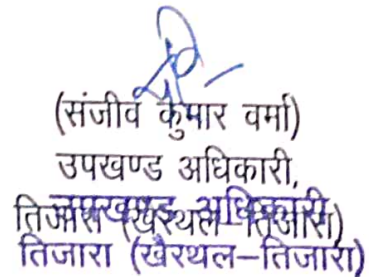 (संजीव कुमार वर्मा)
उपखण्ड अधिकारी,
तिजारा (खैरथल-तिजारा)
उपखण्ड अधिकारी
तिजारा (खैरथल-तिजारा)